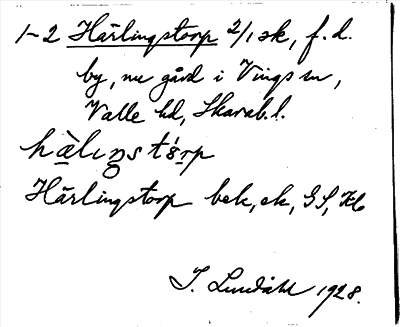 1-2 Härlingstorp 2/1 sk, f.d.
by, nu gård i Vings sn,
Valle hd, Skarab.l.
hàlıŋstórp
Härlingstorp bek, ek, GS, Hb
I. Lundahl 1928.